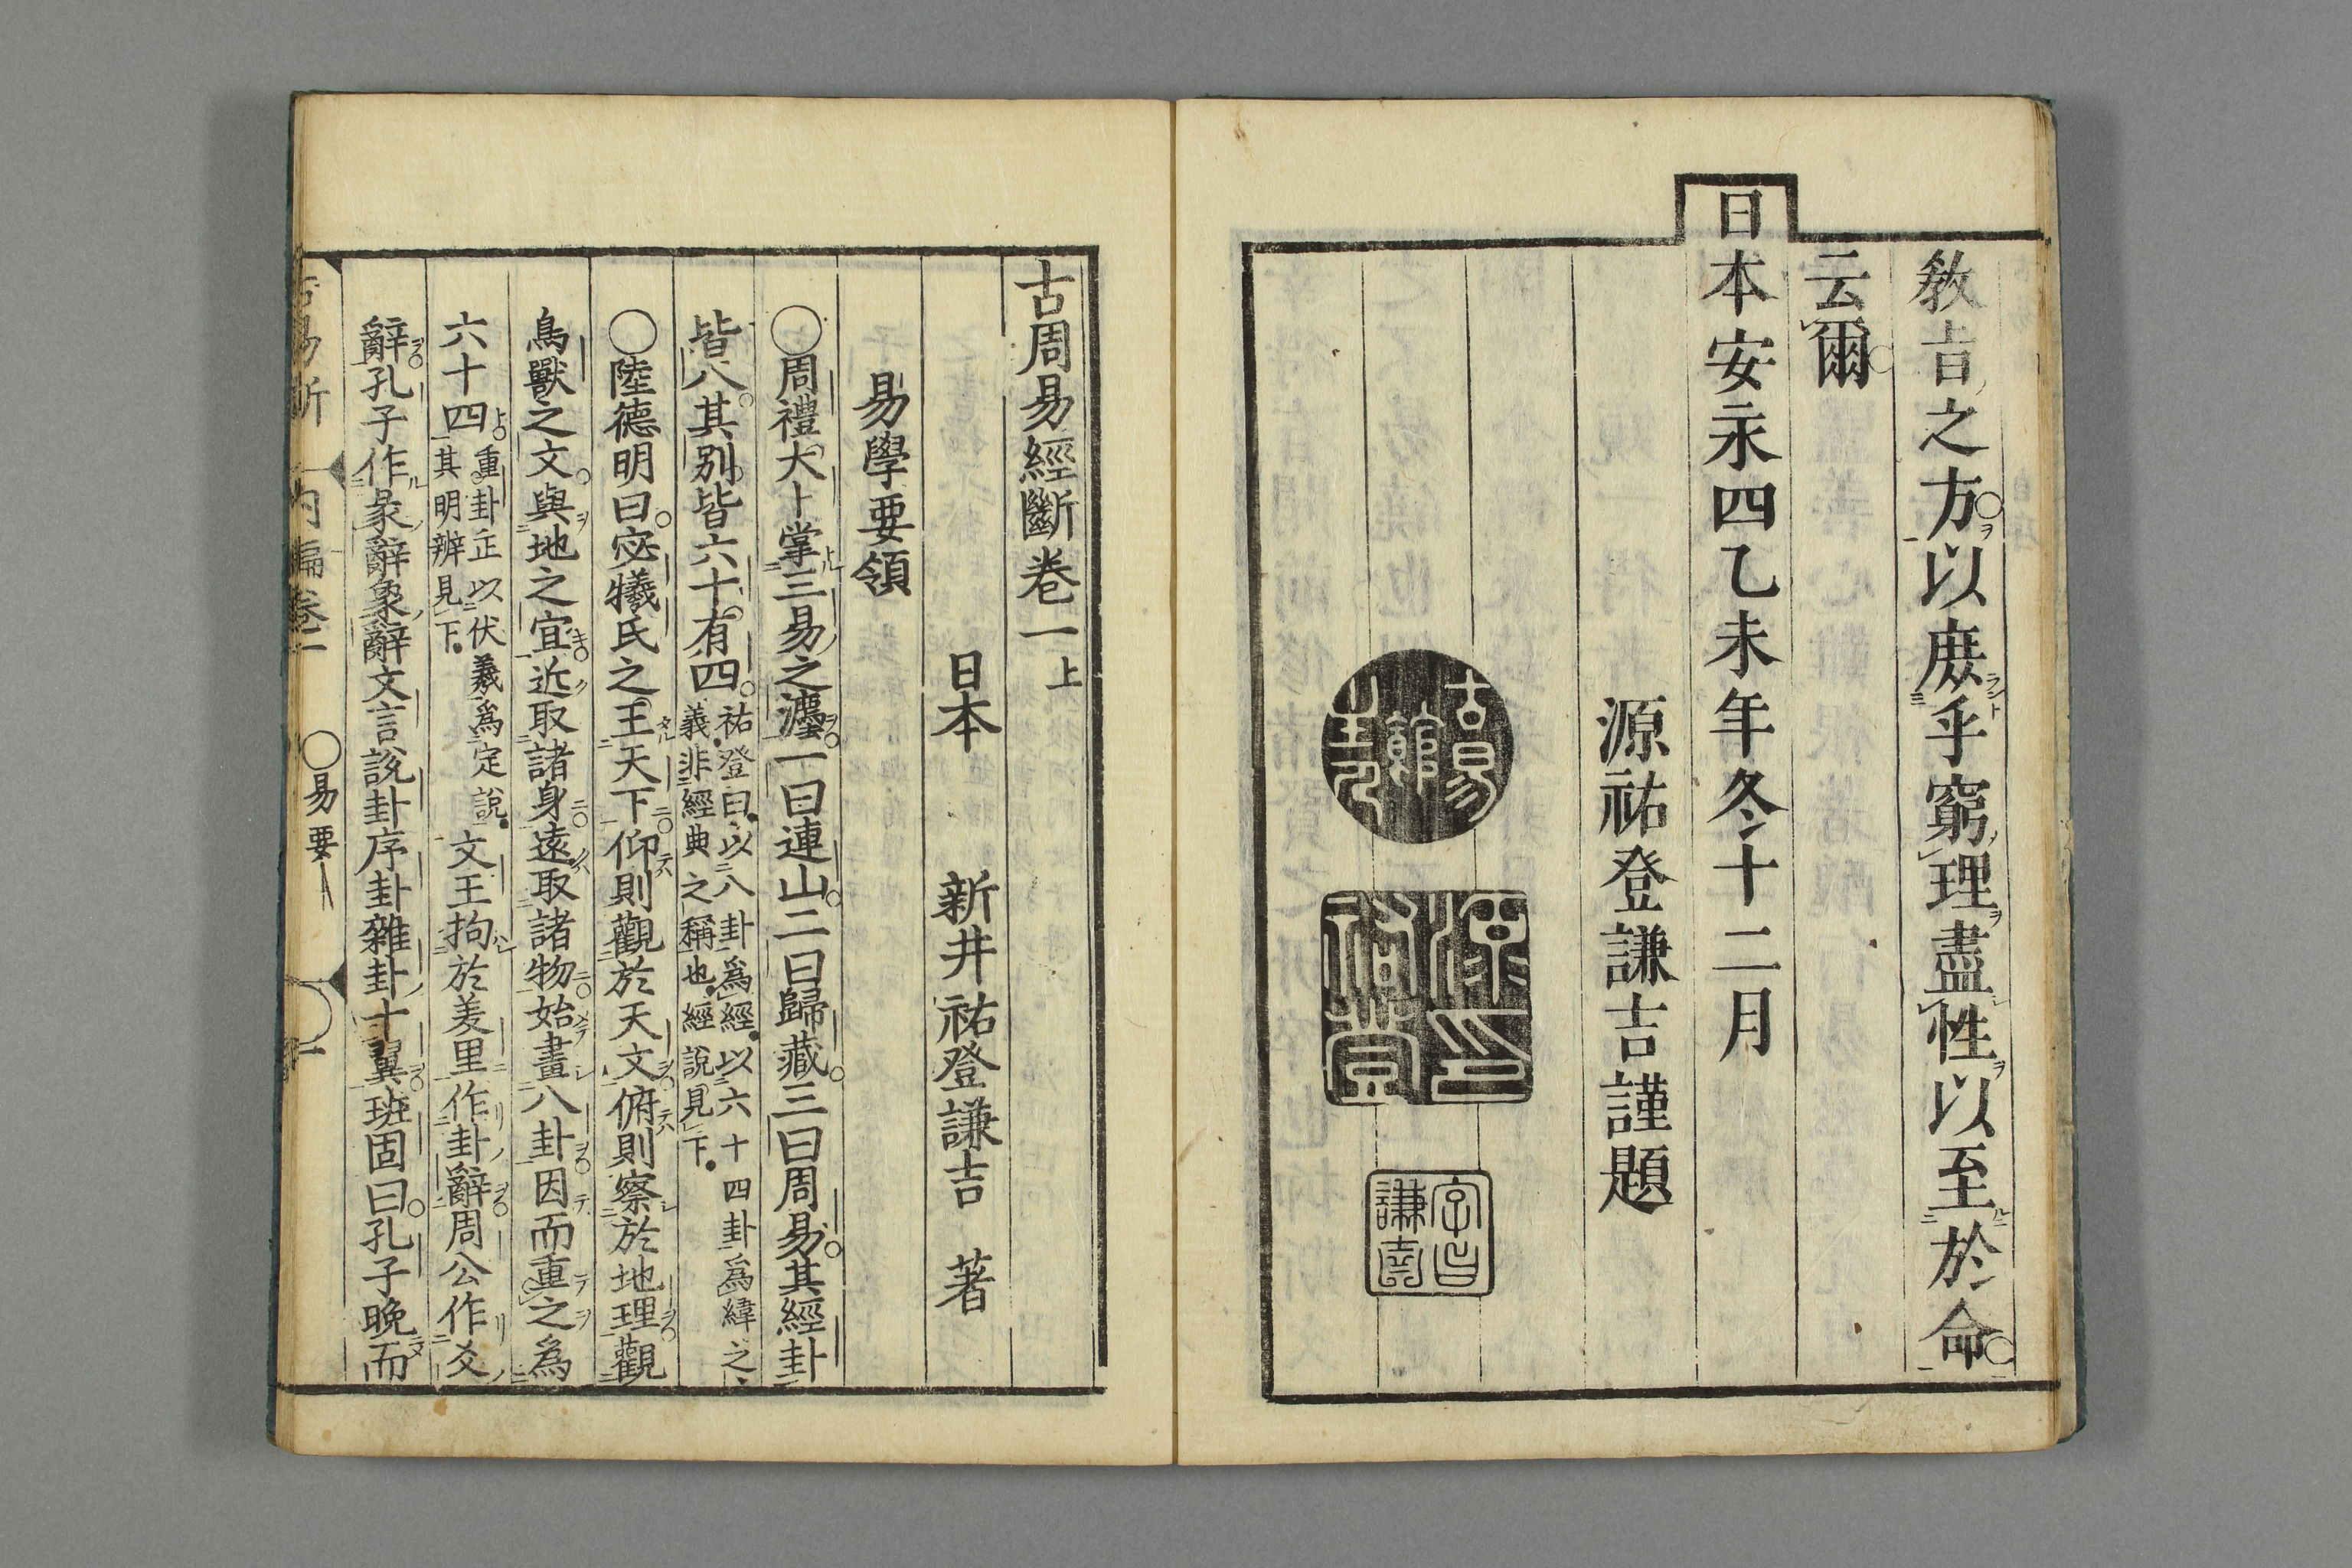 敎吉之方以庶乎窮理盡性以至於命
云爾
日本安永四乙未年冬十二月
源祐登謙吉謹題
古易館
源祐
登印
字曰
謙吉
古周易經斷卷一上
日本 新井祐登謙吉 著
易學要領
○周禮大卜掌三易之灋一曰連山二曰歸藏三曰周易其經卦
皆八其別皆六十有四祐登曰以八卦爲經以六十四卦爲緯之
義非經典之稱也經說見下
○陸德明曰宓犧氏之王天下仰則觀於天文俯則察於地理觀
鳥獸之文與地之宜近取諸身遠取諸物始畫八卦因而重之爲
六十四重卦正以伏羲爲定說
其明辨見下文王拘於羑里作卦辭周公作爻
辭孔子作彖辭象辭文言說卦序卦雜卦十翼班固曰孔子晚而
古易斷 內編卷一 ○易要 一